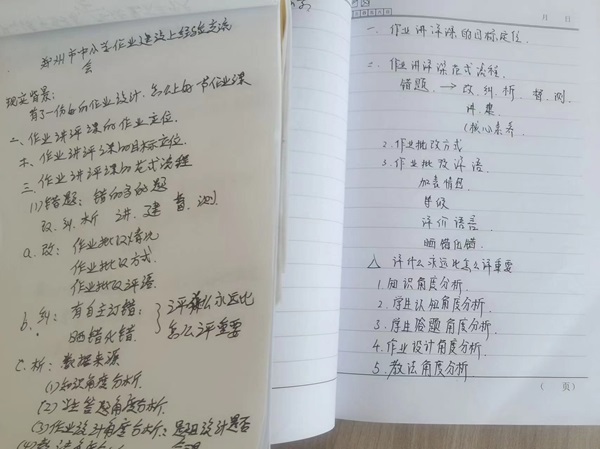 郑州市中小学作业建设上经验交流
会
现实背景:
有了一份好的作业设计,怎么上好一节作业课
二、作业讲评课的作业定位.
木、作业讲评课的目标定位.
三、作业讲评课的范式流程
(1)错题: 错的多的题
改.纠.析 讲.建 督.测.
a.改: 作业批改情况
作业批改方式.
作业批改评语.
b.纠: 有自主订错:
晒错化错.
评什么永远比
怎么评重要
c.析: 数据来源
(1)知识角度分析.
(2)学生答题角度分析.
(3)作业设计角度分析: 题目设计是否
月 日
一、作业讲评课的目标定位.
二、作业讲评课范式流程.
错题. → 改.纠.析. 督.测.
讲.集.
(核心素养.
2.作业批改方式
3.作业批改评语.
加表情包.
等候
评价语言
晒错化错.
△ 评什么永远比怎么评重要
1.知识角度分析.
2.学生认知角度分析.
3.学生答题角度分析.
4.作业设计角度分析.
5.教法角度分析
( 页)